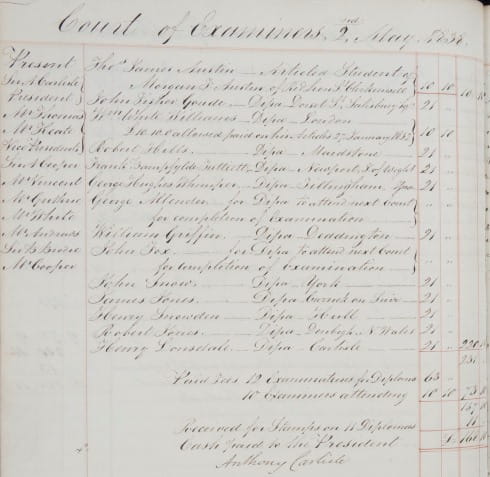 Court of Examiners, 2nd May 1838.
Present
Sir A Carlisle
President
Mr Thomas
Mr Keate
Vice Presidents
Sir A Cooper
Mr Vincent
Mr Guthrie
Mr White
Mr Andrews
Sir B Brodie
Mr Cooper
Thos James Austin — Articled Student of
Morgan T. Austin, of Red Lion St Clerkenwell 10 10
John Fisher Goude — Dipa Dorset St Salisbury Sq 21 "
Wm White Williams — Dipa — London
£10.10 allowed paid on his Articles 27 January 1832 10 10
Robert Hills — Dipa — Maidstone 21 "
Frank — Dipa — Newport, I. of Wight 21 "
George Hughes Whimper — Dipa — Gillingham 21 "
George Allender — for Dipa to attend next Court
for completion of Examination — " "
William Griffin — Dipa — Deddington — 21 "
John Fox — for Dipa to attend next Court
for completion of Examination — " "
John Snow — Dipa — York — 21 "
James Jones — Dipa Carrick on Suir — 21 "
Henry Snowden — Dipa — Hull — 21 "
Robert Jones — Dipa — Denbigh, N Wales 21 "
Henry Lonsdale — Dipa — Carlisle 21 "
Paid Fees 12 Examinations for Diploma 63 "
10 Examiners attending 10 10
Received for Stamps on 11 Diplomas
Cash paid to the President
Anthony Carlisle